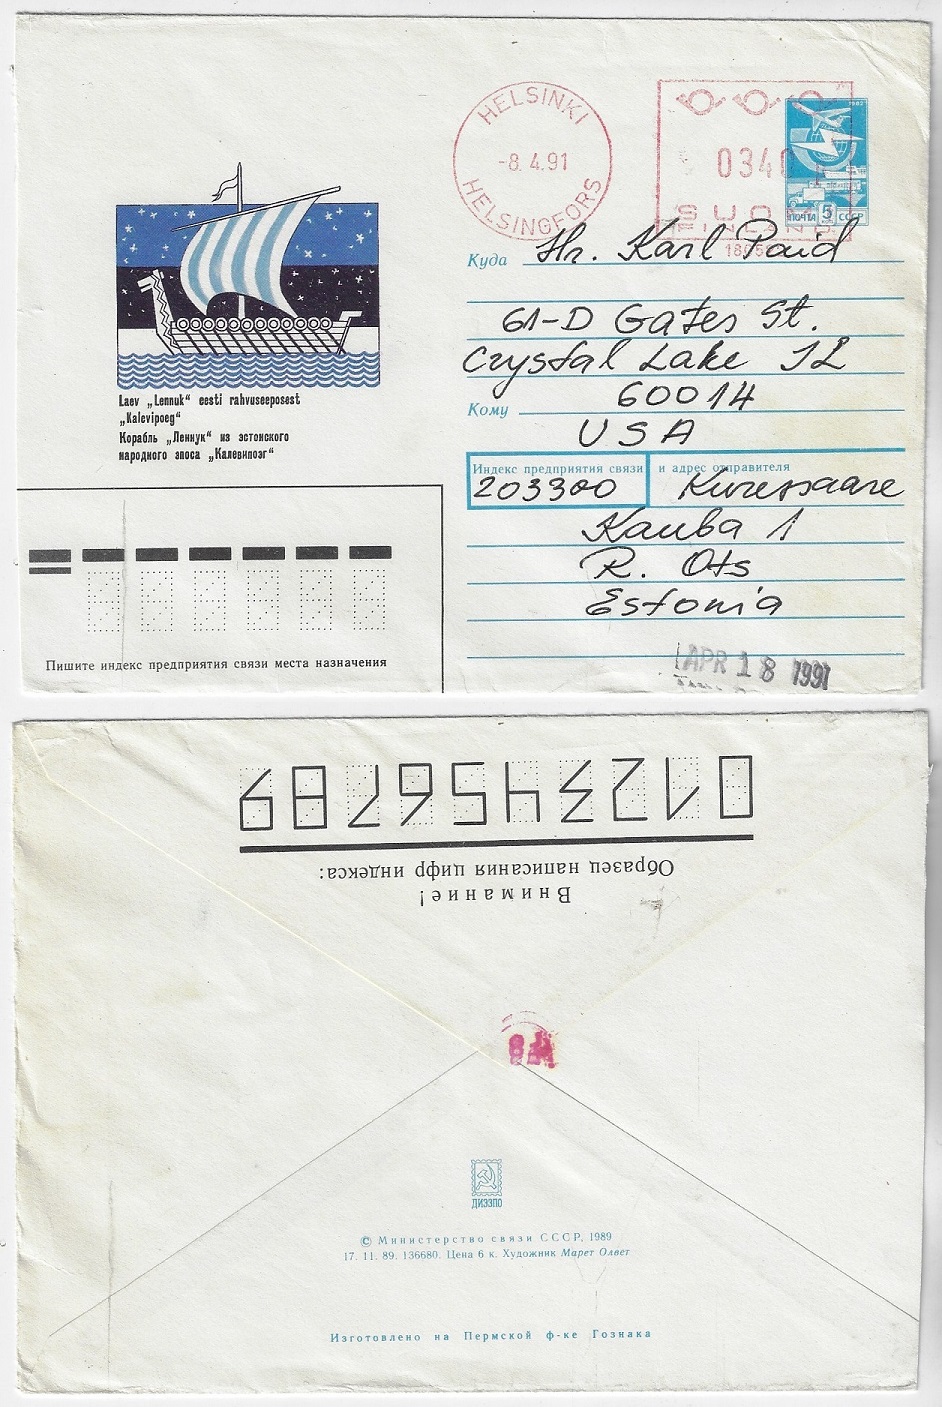 HELSINKI
-8. 4.91
HELSINGFORS
0340
SUOMI
FINLAND
1982
ПОЧТА 5 СССР
Куда Hr. Karl Paid
61-D Gates St.
Crystal Lake IL
60014
Кому
USA
Laev „Lennuk“ eesti rahvuseeposest
„Kalevipoeg“
Корабль „Леннук“ из эстонского
народного эпоса „Калевипоэг“
Индекс предприятия связи и адрес отправителя
203300 Kuressaare
Kauba 1
R. Ots
Estonia
Пишите индекс предприятия связи места назначения
APR 18 1991
0 1 2 3 4 5 6 7 8 9
Образец написания цифр индекса:
Внимание!
ДИЭЗПО
© Министерство связи СССР, 1989
17. 11. 89. 136680. Цена 6 к. Художник Марет Олвет
Изготовлено на Пермской ф-ке Гознака